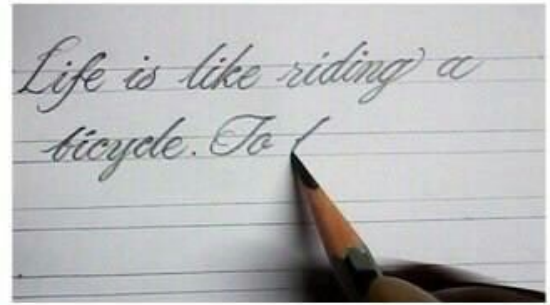 Life is like riding a
bicycle. To